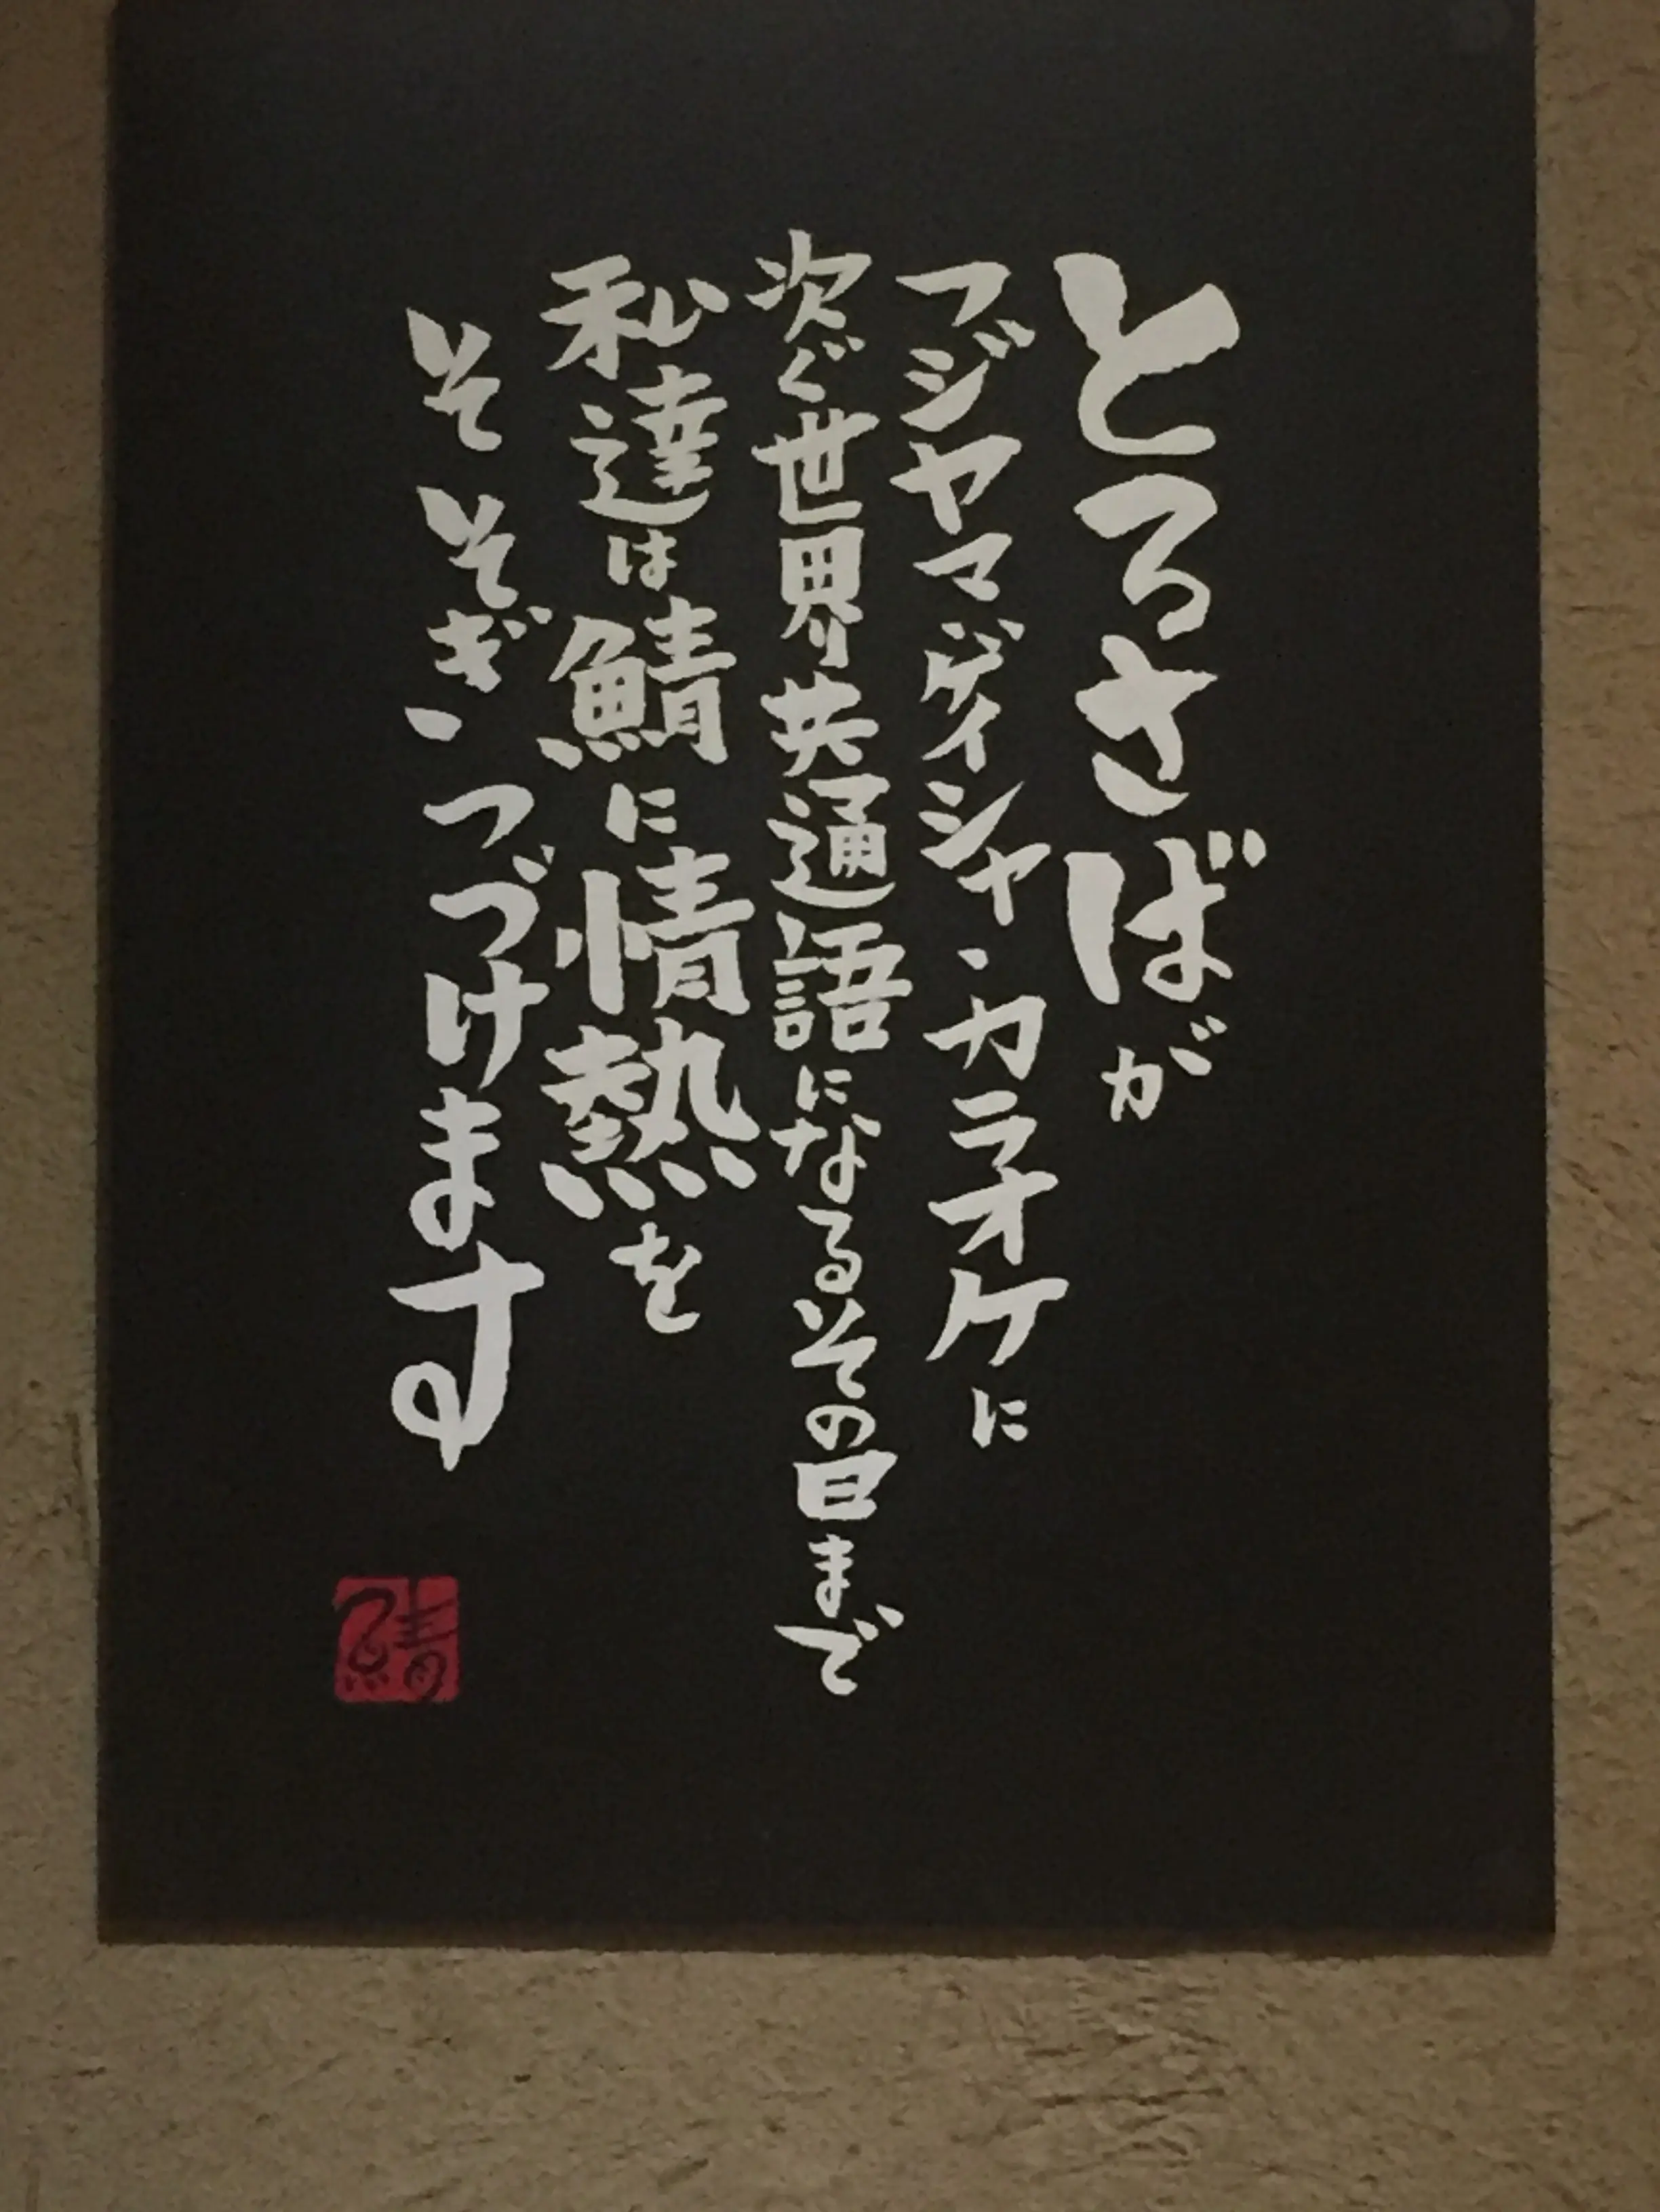 とろさばが
フジヤマ・ゲイシャ・カラオケに
次ぐ世界共通語になるその日まで
私達は鯖に情熱を
そそぎ、つづけます
鯖